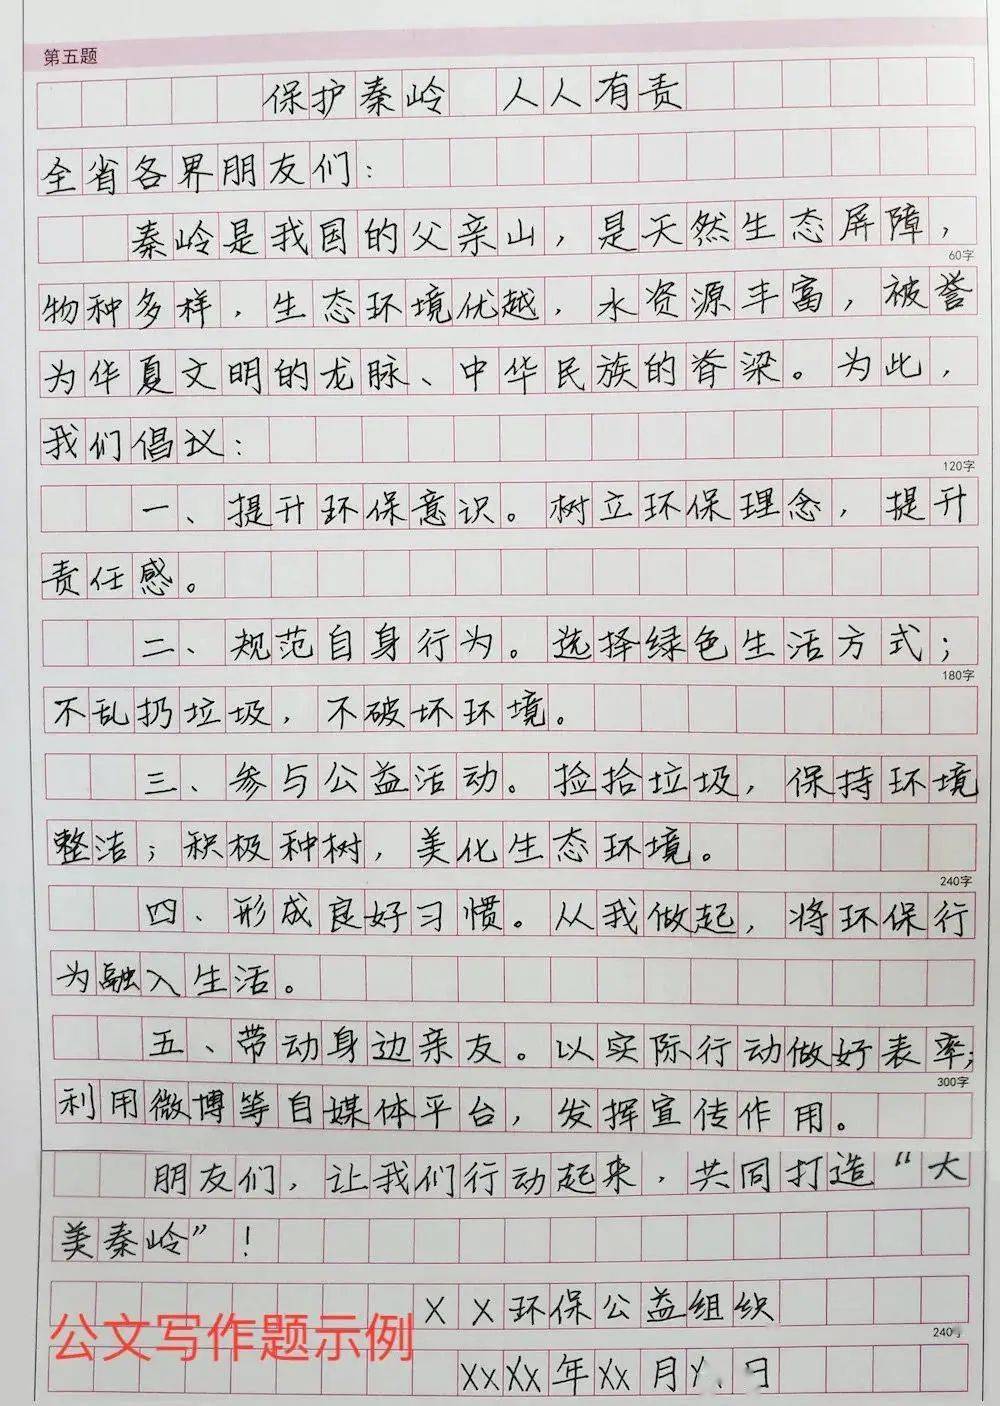 第五题
保护秦岭 人人有责
全省各界朋友们：
秦岭是我国的父亲山，是天然生态屏障，
60字
物种多样，生态环境优越，水资源丰富，被誉
为华夏文明的龙脉、中华民族的脊梁。为此，
我们倡议：
120字
一、提升环保意识。树立环保理念，提升
责任感。
二、规范自身行为。选择绿色生活方式；
180字
不乱扔垃圾，不破坏环境。
三、参与公益活动。捡拾垃圾，保持环境
整洁；积极种树，美化生态环境。
240字
四、形成良好习惯。从我做起，将环保行
为融入生活。
五、带动身边亲友。以实际行动做好表率；
300字
利用微博等自媒体平台，发挥宣传作用。
朋友们，让我们行动起来，共同打造“大
美秦岭”！
XX环保公益组织
240字
公文写作题示例
XXXX年XX月X、日